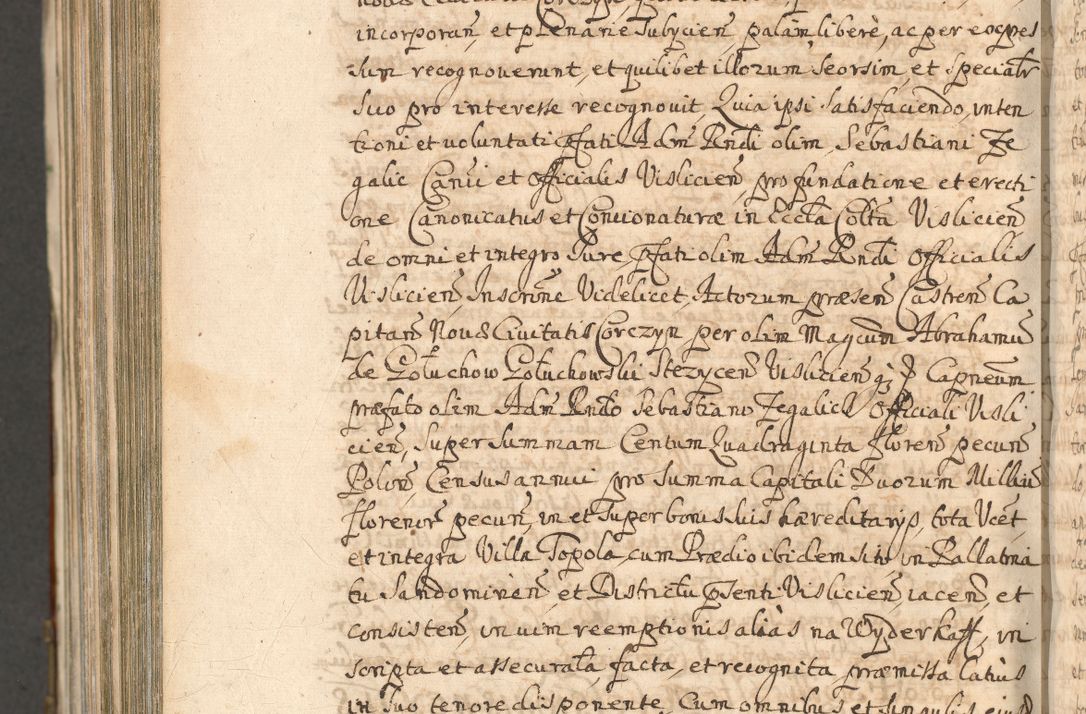 incorporan̄, et plenarie subÿcien̄, palam libere, ac per expres
sum recognoverunt, et quilibet illorum seorsim, et specialr̄
suo pro interesse recognovit, Quia ipsi satisfaciendo, inten
tioni et voluntati pfati Adm̄ Rndi olim, Sebastiani Ze
galic Canci et Officialis Vislicien̄, pro fundatione et erecti
one Canonicatus et Concionaturæ in Eccla Colta Vislicien̄
de omni et integro Jure, pfati olim Adm̄ Rndi Officialis
Vislicien̄, Inscrōne Videlicet, Actorum præsen̄ Castren̄ Ca
pitan̄ Novæ Civitatis Corczyn per olim Magcum Abrahamū
de Gołuchow Gołuchowski Stezycen̄ Vislicien̄ qz Capneum
præfato olim Adm̄ Rndo Sebastiano Zegalick Officiali Visli
cien̄, super summam Centum Quadraginta floren̄ pecun̄
Polon̄, Census annui pro summa Capitali Duorum Milliū
florenor̄ pecun̄, in et super bonis suis hæreditarÿs, tota Vcēt
et integra Villa Topola, cum Prædio ibidem sito in Pallatina
tu Sandomirien̄ et Districtu psenti Vislicien̄, iacen̄, et
consisten̄, in vim reemptionis alias na Wyderkaff, in
scripta et assecurata, facta, et recognita, præmissa latius
in suo tenore disponente, Cum omnibus et singulis eiusd